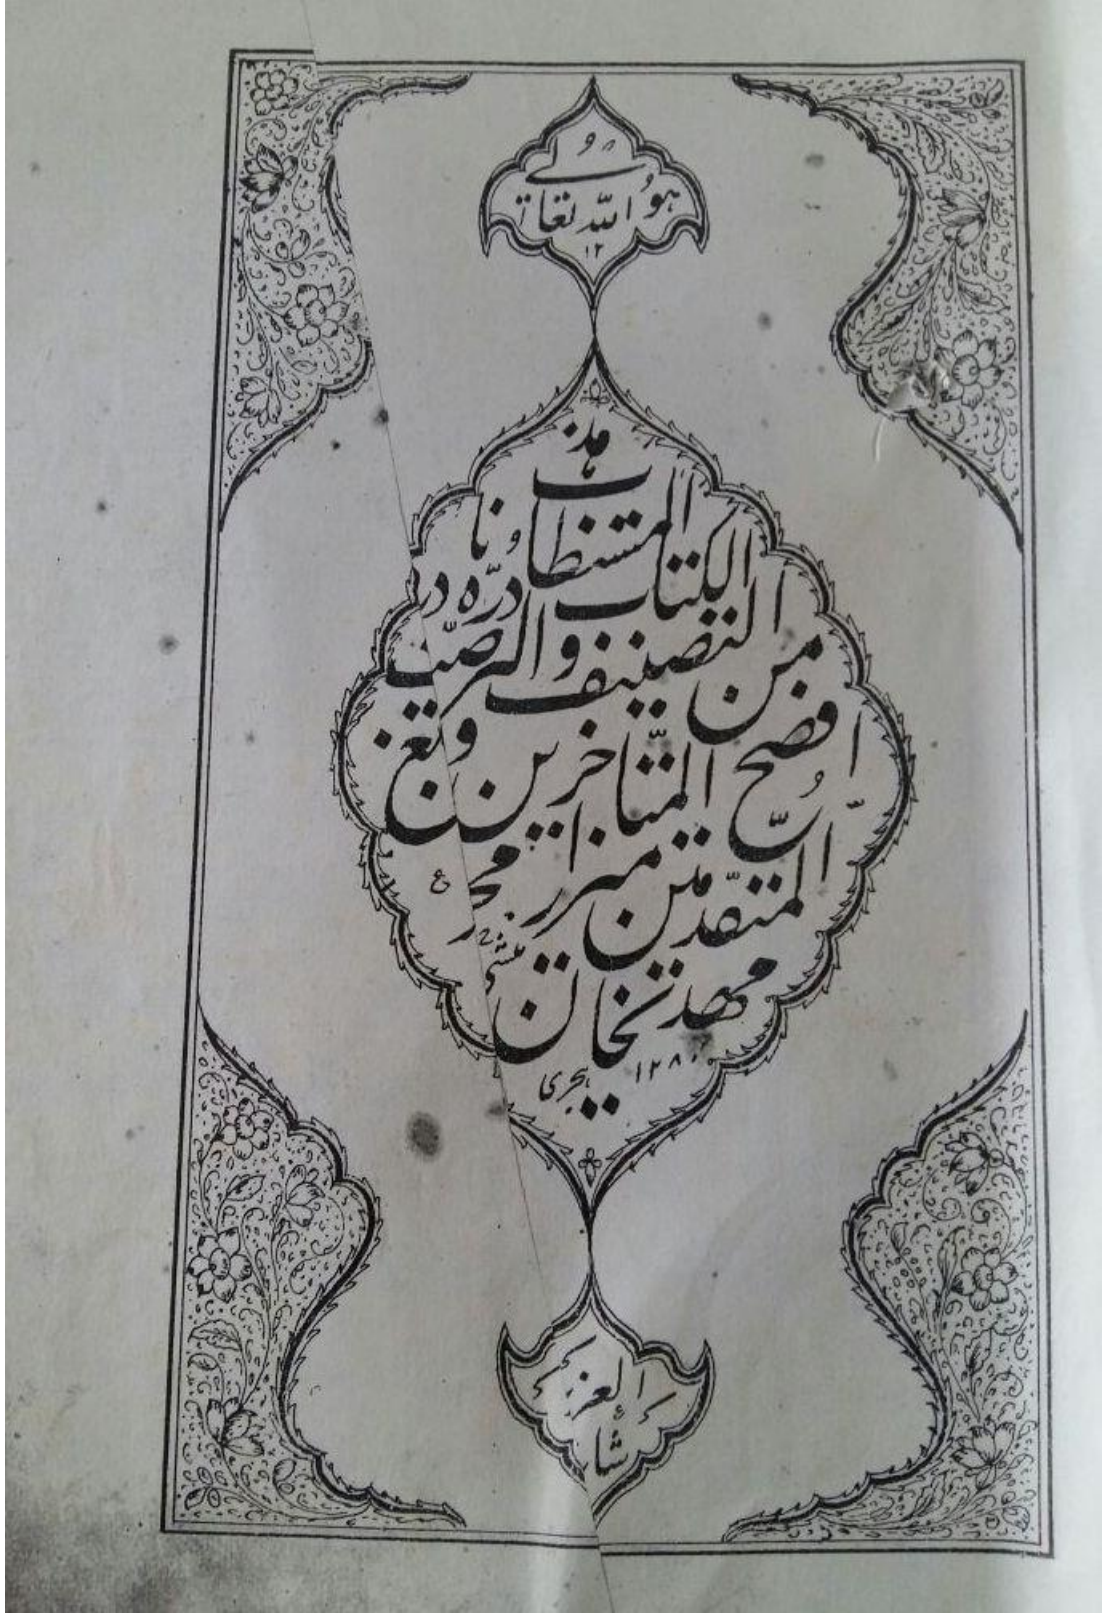 هو الله تعالی
۱۲
هذ
الکتاب المستطاب درّه نادر
من التصنیف والترصیف
افصح المتاخرین و
المتقدّمین میرزا محمد
مهدیخان منشی
۱۲۸۰ هجری